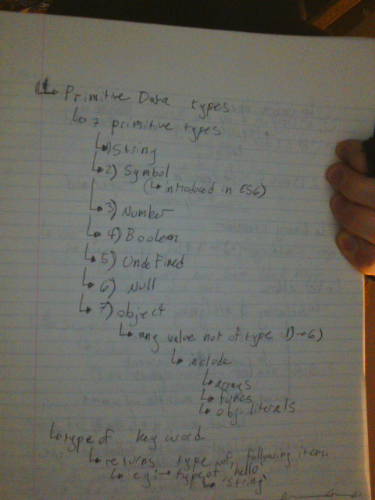 Primitive Data types
7 primitive types
1) String
2) Symbol
(introduced in ES6)
3) Number
4) Boolean
5) Undefined
6) Null
7) object
any value not of type 1)→6)
include
arrays
obj literals
type of key word
returns type of following item
e.g. type of 'hello'
'String'